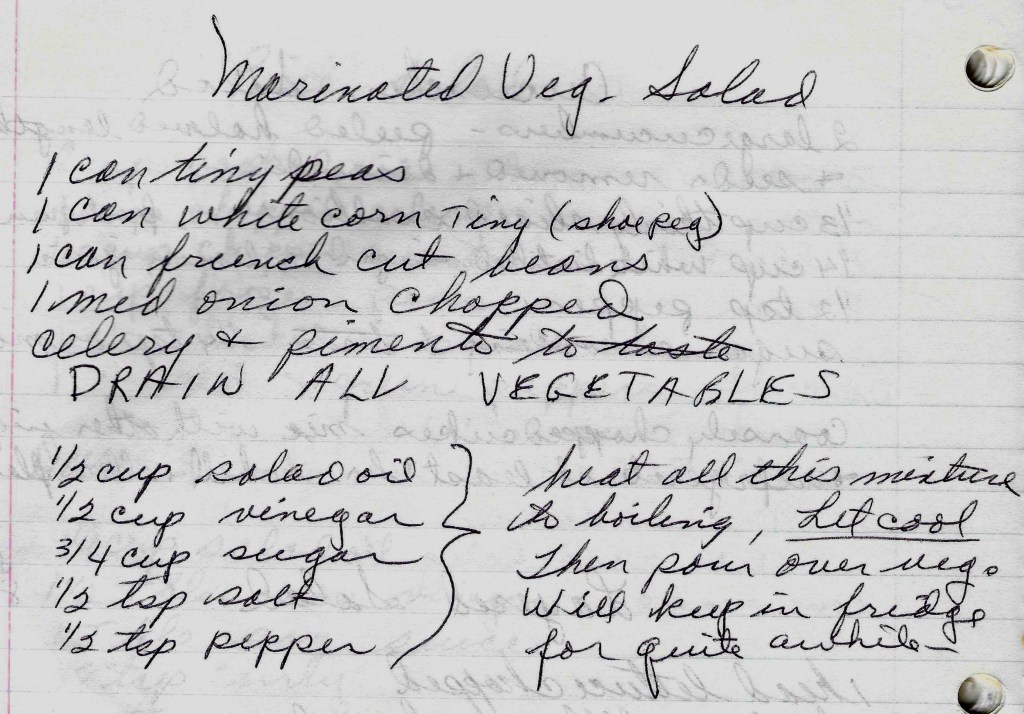 Marinated Veg. Salad
1 can tiny peas
1 can white corn Tiny (shoepeg)
1 can freench cut beans
1 med onion chopped
celery & pimento to taste
DRAIN ALL VEGETABLES
1/2 cup salad oil
1/2 cup vinegar
3/4 cup sugar
1/2 tsp salt
1/2 tsp pepper
heat all this mixture
to boiling, Let cool
Then pour over veg.
Will keep in fridge
for quite awhile—